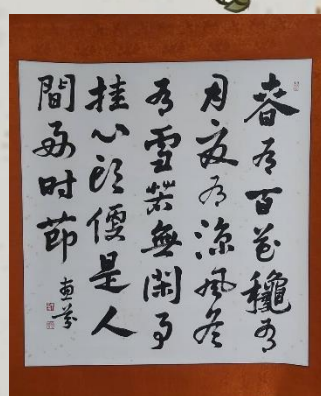 春有百花龝有
月夏有涼風冬
有雪若無閑事
挂心頭便是人
間好时節
惠芬